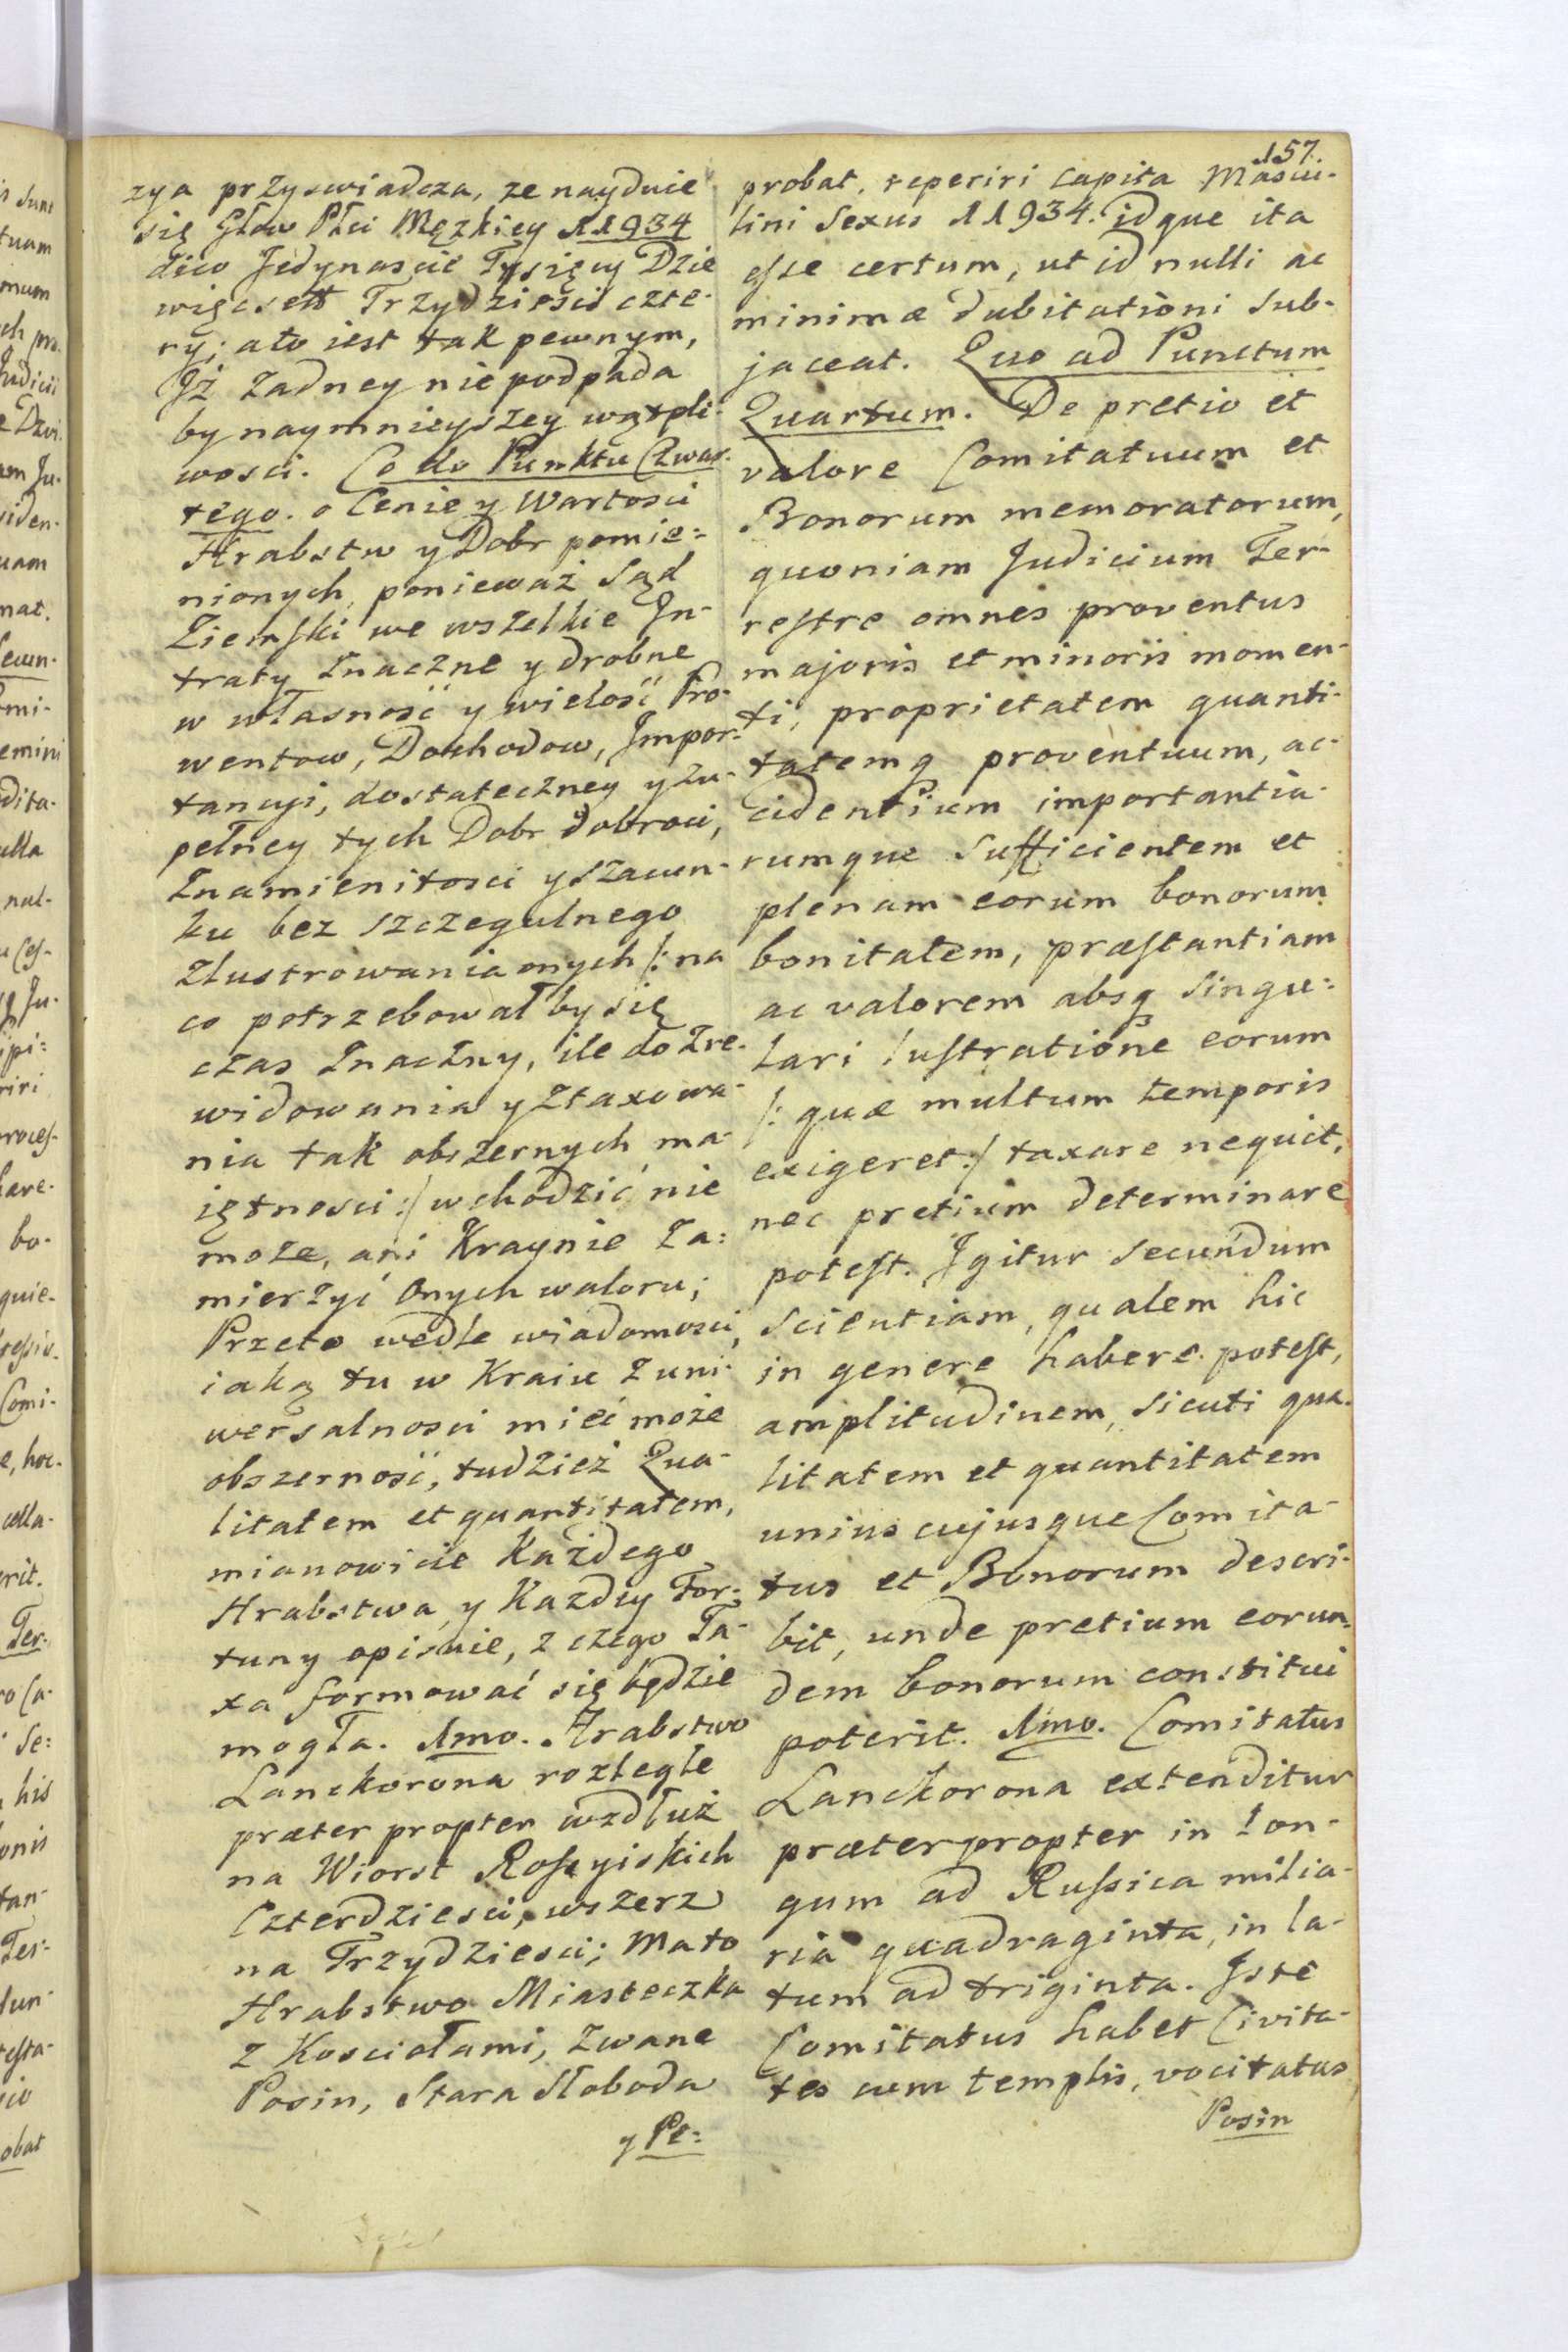 157.
zya przyswiadcza, ze nayduie
się Głow Płci Męzkiey 11934
dico Jedynascie Tysięcy Dzie
więcset Trzydzieści czte-
ry; ato iest tak pewnym,
Jż żadney nie podpada
by naymnieyszey wątpli-
wosci. Co do Punktu Czwar-
tego. o Cenie y Wartosci
Hrabstw y Dobr pomie=
nionych, ponieważ Sąd
Ziemski we wszelkie In-
traty znaczne y drobne
w własność y wielość Pro-
wentow, Dochodow, Impor-
tancyi, dostateczney y zu-
pełney tych Dobr dobroci,
znamienitosci y szacun-
ku bez szczegulnego
zlustrowania onych /: na
co potrzebował by się
czas znaczny, ile do zre-
widowania y ztaxowa-
nia tak obszernych ma-
iętnosci :/ wchodzić nie
może, ani Kraynie za=
mierzyć onych waloru;
Przeto wedle wiadomosci,
iaką tu w Kraiu z uni-
wersalnosci mieć może
obszerność, tudzież Qua-
litatem et quantitatem,
mianowicie Każdego
Hrabstwa y Każdey For-
tuny opisuie, z czego Ta-
xa formować się będzie
mogła. 1mo. Hrabstwo
Lanckorona rozległe
præter propter wzdłuż
na Wiorst Rossyiskich
Czterdziesci, wszerz
na Trzydziesci; Mato
Hrabstwo Miasteczka
z Kosciołami, zwane
Posin, Stara Słoboda
y Pe=
probat, reperiri capita Mascu-
lini Sexus 11934. idque ita
esse certum, ut id nulli ac
minimæ dubitationi sub-
jaceat. Quo ad Punctum
Quartum. De pretio et
valore Comitatuum et
Bonorum memoratorum,
quoniam Judicium Ter-
restre omnes proventus
majoris et minoris momen-
ti, proprietatem quanti-
tatemq proventuum, ac-
cidentium importantia-
rumque sufficientem et
plenam eorum bonorum
bonitatem, præstantiam
ac valorem absq singu=
lari lustratione eorum
/: quæ multum temporis
exigeret :/ taxare nequit,
nec pretium determinare
potest. Igitur secundum
scientiam, qualem hic
in genere habere potest,
amplitudinem, sicuti qua-
litatem et quantitatem
unius cujusque Comita-
tus et Bonorum descri-
bit, unde pretium eorun-
dem bonorum constitui
poterit. 1mo. Comitatus
Lanckorona extenditur
præterpropter in lon-
gum ad Russica milia-
ria quadraginta, in la-
tum ad triginta. Iste
Comitatus habet Civita-
tes cum templis, vocitatas
Posin